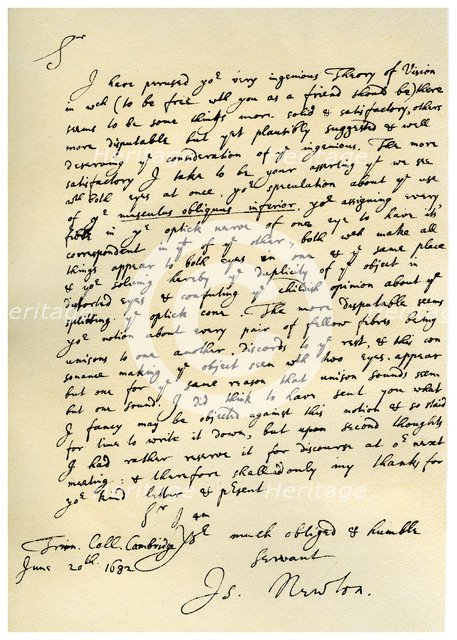 Sr
I have perused yor very ingenious Theory of Vision
in wch (to be free with you as a friend should be) there
seems to be some things more solid & satisfactory, others
more disputable but yet plausibly suggested & well
deserving ye consideration of ye ingenious. The more
satisfactory I take to be your asserting yt we see
wth both eyes at once, yor speculation about ye use
of ye musculus obliquus inferior, yor assigning every
fibre in ye optick nerve of one eye to have its
correspondent in yt of ye other, both wch make all
things appear to both eyes in one & ye same place
& yor solving hereby ye duplicity of ye object in
distorted eyes & confuting ye childish opinion about ye
splitting ye optick cone. The more disputable seems
yor notion about every pair of fellow fibres being
unisons to one another, discords to ye rest, & this con
sonance making ye object seen with two eyes appear
but one for ye same reason that unison sounds seem
but one sound. I did think to have sent you what
I fancy may be objected against this notion & so staid
for time to write it down, but upon second thoughts
I had rather reserve it for discourse at or next
meeting: & therefore shall add only my thanks for
yor kind letter & present.
Sr I am
Trin. Coll. Cambridge yor much obliged & humble
June 20th. 1682 Servant
Is. Newton.
Heritage
Heritage
Heritage
Heritage